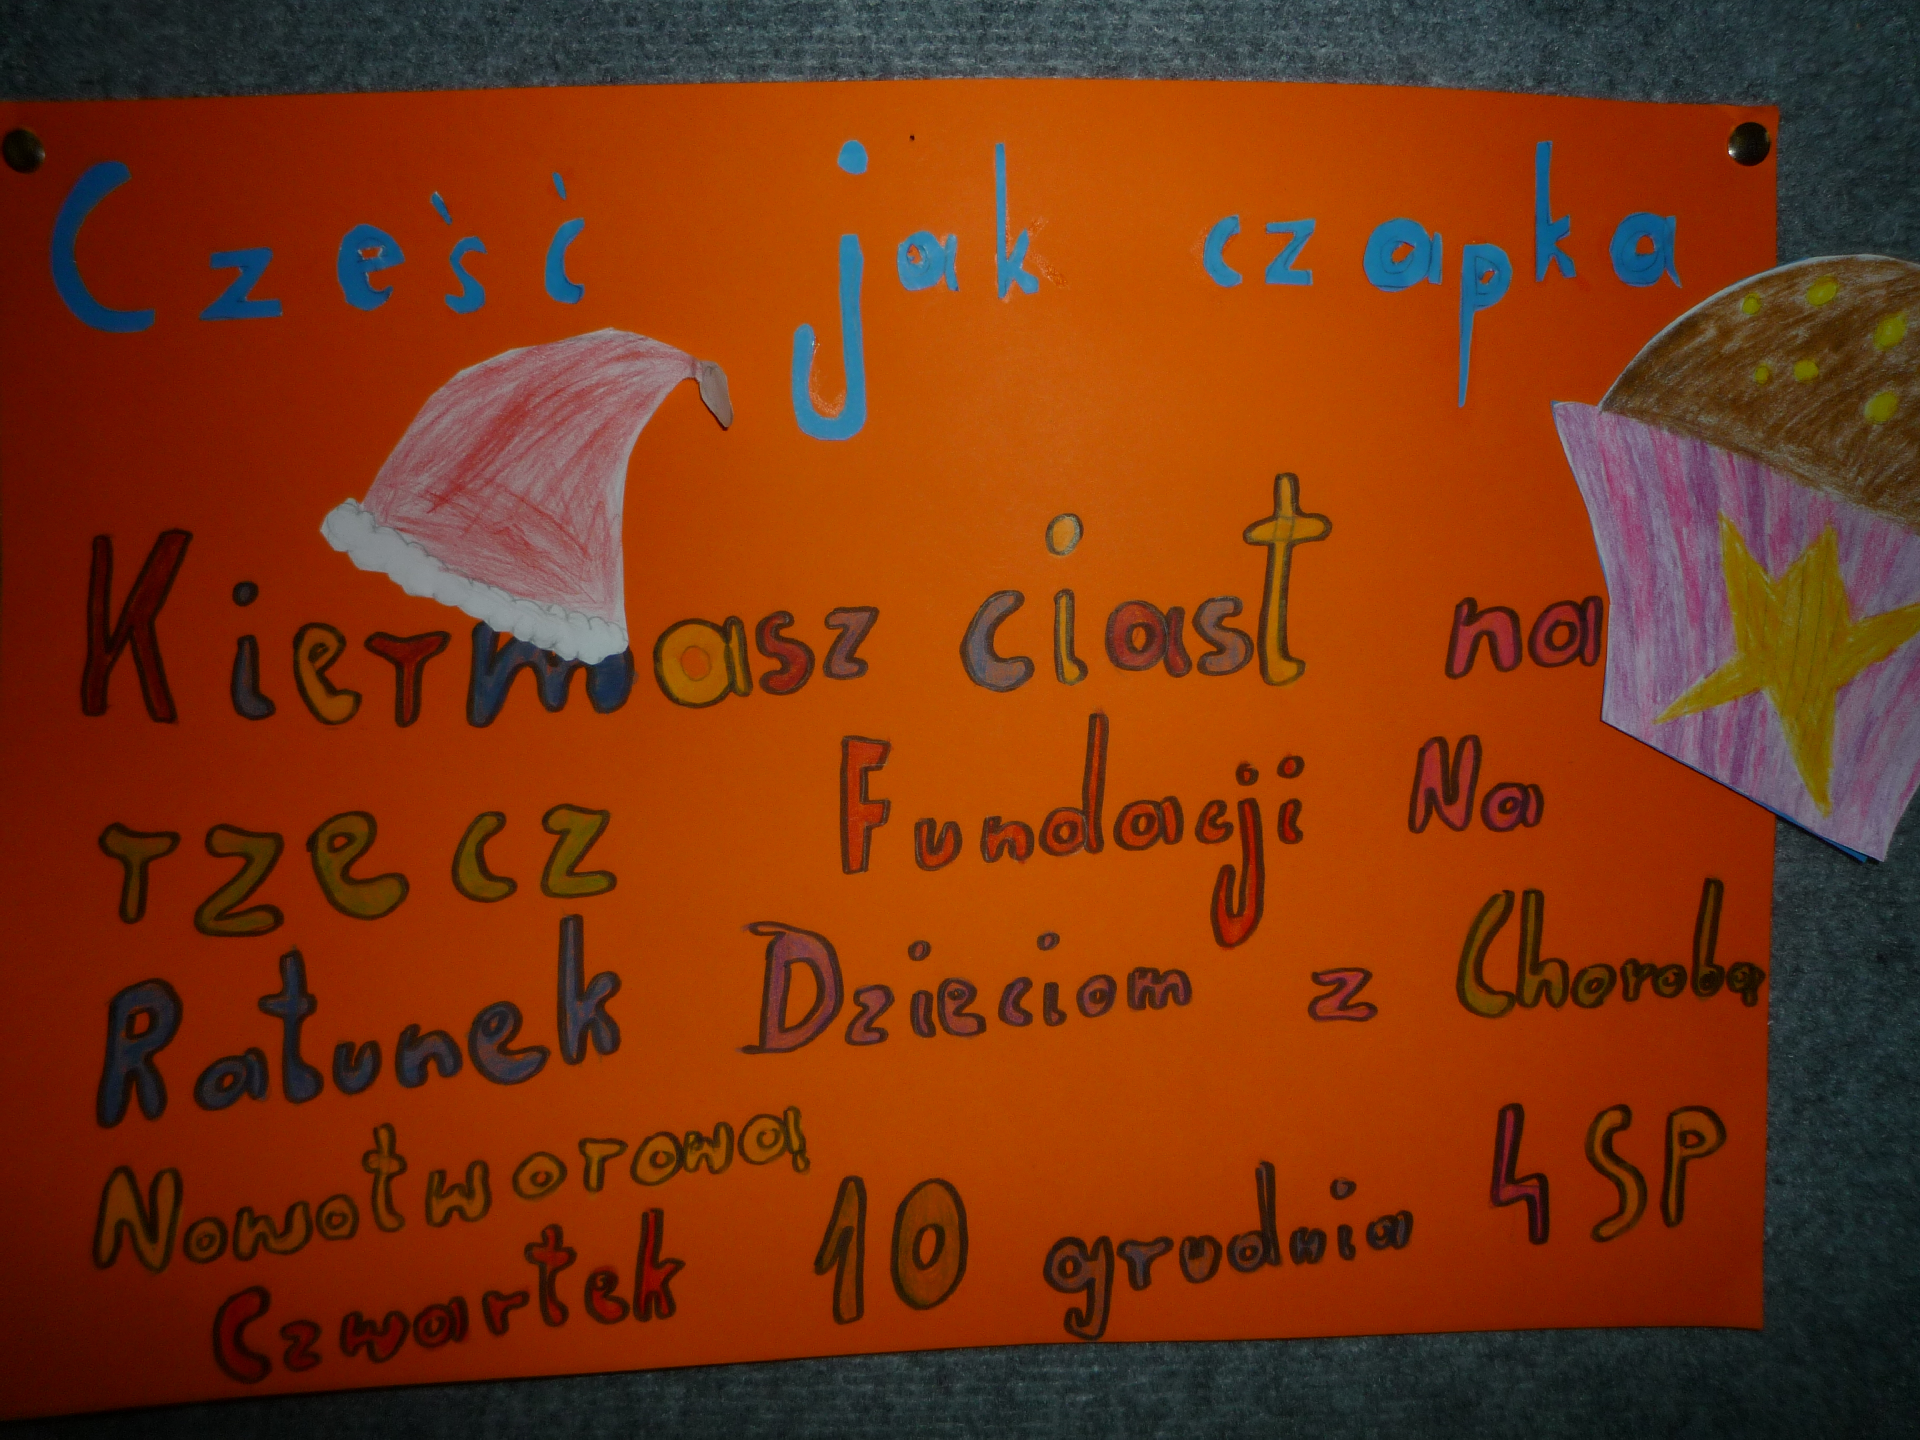 Cześć jak czapka
Kiermasz ciast na
rzecz Fundacji Na
Ratunek Dzieciom z Chorobą
Nowotworową
Czwartek 10 grudnia 4 SP